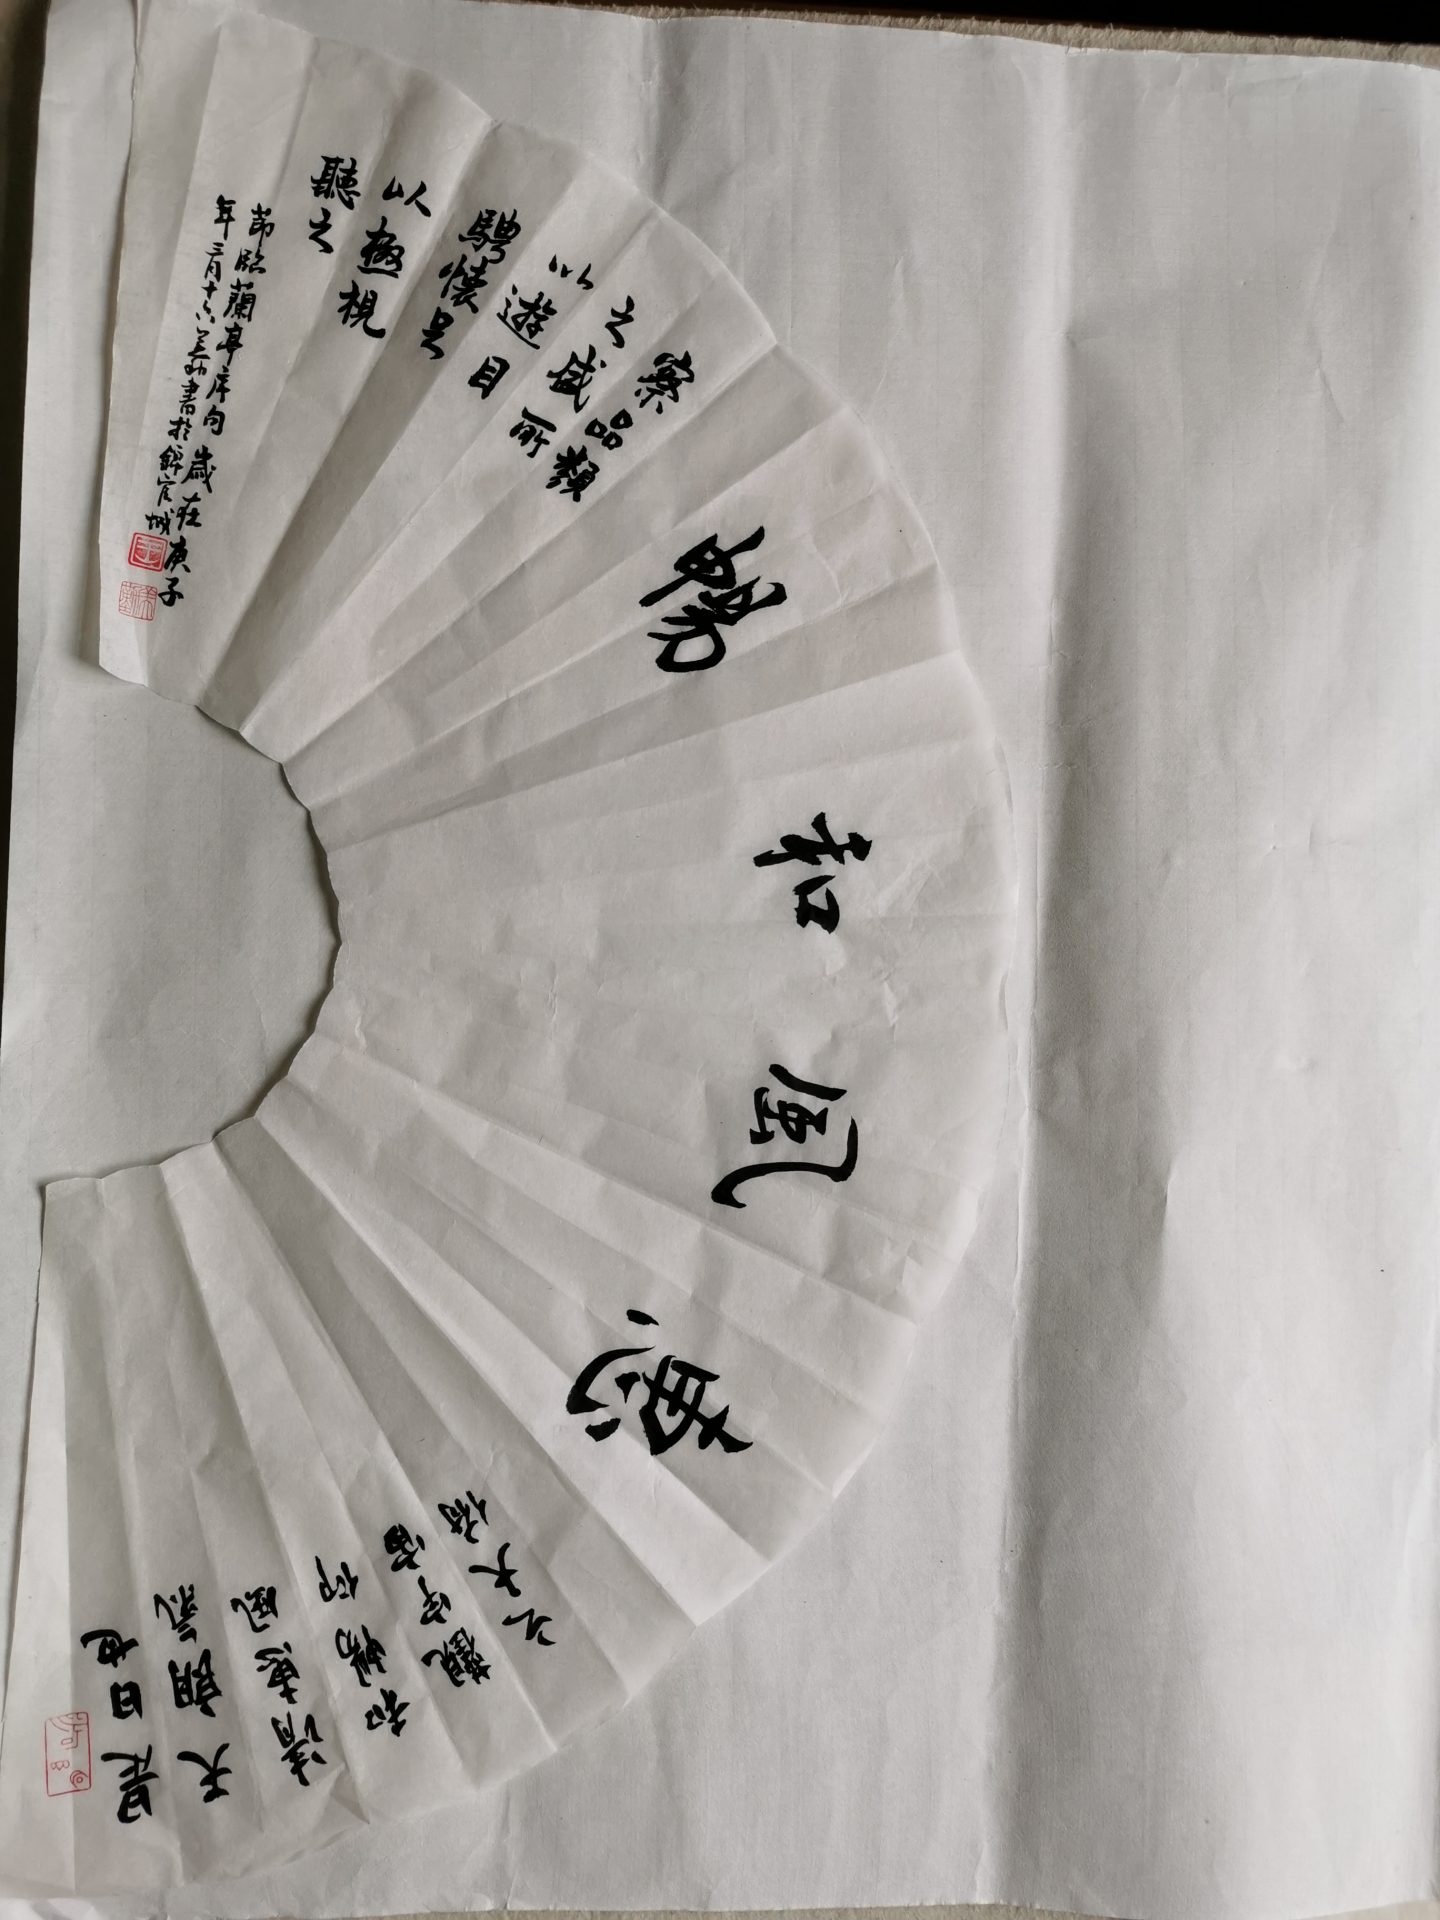 是日也
天朗氣
清惠風
和暢仰
觀宇宙
之大俯
惠風和暢
察品類
之盛所
以遊目
騁懷足
以極視
聽之
節臨蘭亭序句歲在庚子
年三月十六書於錦官城